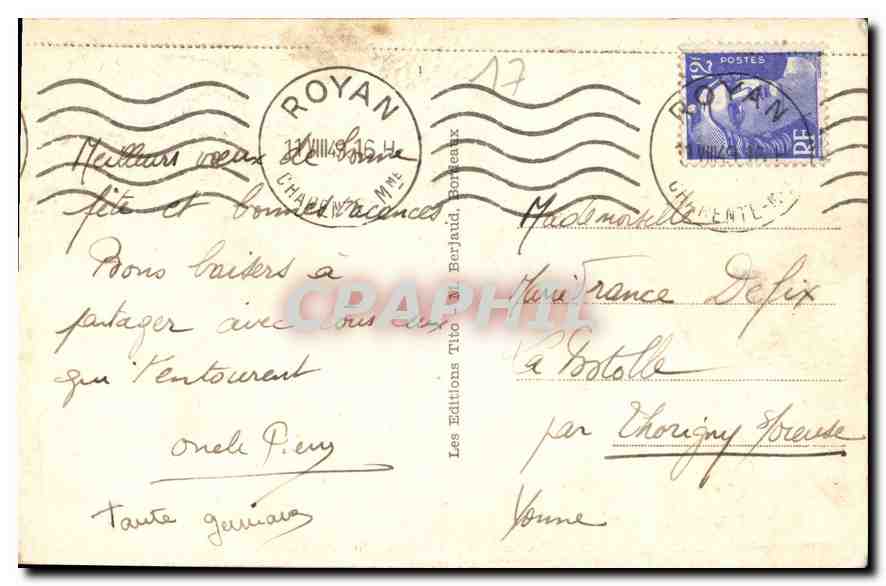 17
ROYAN
11 VIII 49 16 H
CHARENTE-Mme
12F
POSTES
RF
ROYAN
CHARENTE-M
Meilleurs vœux de bonne
fête et bonnes vacances
Bons baisers à
partager avec tous ceux
qui t'entourent
Oncle Pierre
Tante Germaine
Les Editions Tito - M. Berjaud, Bordeaux
CPAPHIL
Mademoiselle
Marie France Defix
La
par Thorigny s/oreuse
Yonne